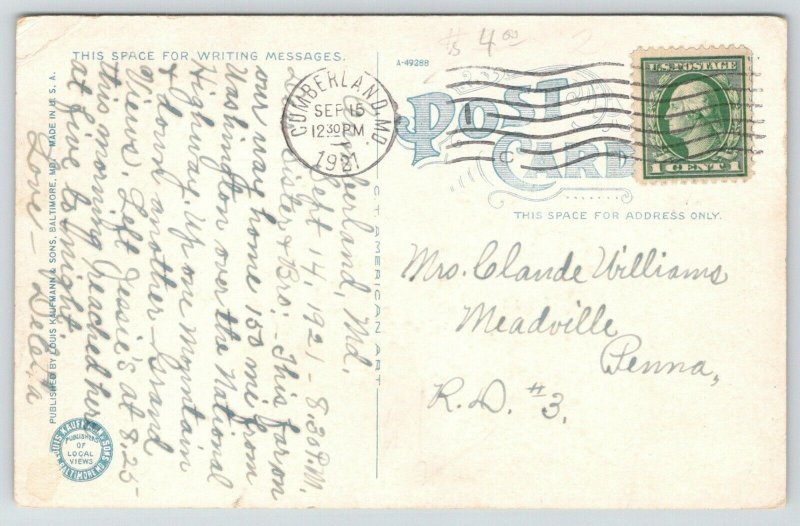 THIS SPACE FOR WRITING MESSAGES.
A-49288
$ 4 00
CUMBERLAND, MD.
SEP 15
12 30 PM
1921
U.S. POSTAGE
1 CENT 1
POST
CARD
THIS SPACE FOR ADDRESS ONLY.
Mrs. Claude Williams
Meadville
Penna,
R.D. #3.
Cumberland, Md.
Sept 14, 1921 - 8:30 P.M.
Sister & Bro: - This far on
our way home 150 mi from
Washington over the National
Highway. Up one Mountain
& down another - Grand
Views. Left Jessie's at 8.25-
this morning reached here
at five to night.
Love -
C.T. AMERICAN ART
PUBLISHED BY LOUIS KAUFMANN & SONS, BALTIMORE, MD. MADE IN U.S.A.
LOUIS KAUFMANN & SONS
PUBLISHERS
OF
LOCAL
VIEWS
BALTIMORE, MD.